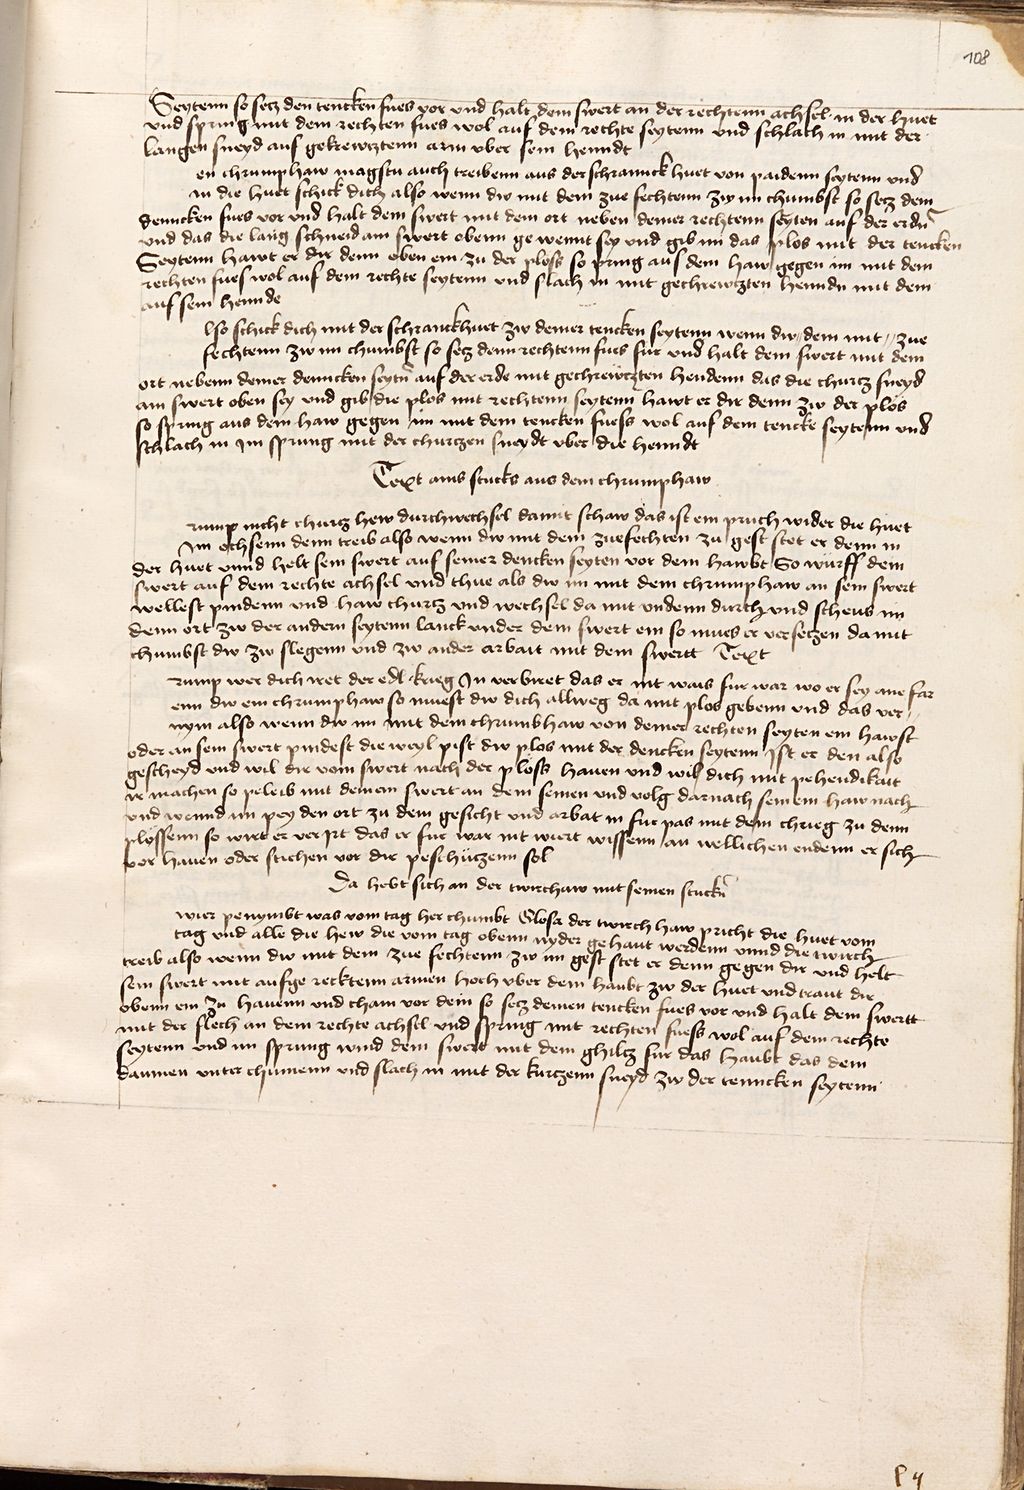 108
Seytenn so secz den tencken fues vor vnd halt dein swert an der rechtenn achsel in der huet
vnd spring mit dem rechten fues wol auf dein rechte seytenn vnd schlach in mit der
langen sneyd aus gekrewcztenn arm vber sein henndt
en chrumphaw magstu auch treibenn aus der schrannck huet von paidenn seytenn vnd
in die huet schick dich also wenn dw mit dem zue fechtenn zw im chumbst so secz dein
denncken fues vor vnd halt dein swert mit dem ort neben deiner rechtenn seyten auf der erdn̄
vnd das die lang schneid am swert obenn gewennt sey vnd gib im das plos mit der tencken
Seytenn hawt er dir denn oben ein zu der ploss so spring aus dem haw gegen im mit dem
rechten fues wol auf dein rechte seytenn vnd slach in mit gechrewczten henndn mit dem
auf sein hennde
lso schick dich mit der schranckhuet zw deiner tencken seytenn wenn dw dem mit zue
fechtenn zw im chumbst so secz denn rechtenn fues fur vnd halt dein swert mit dem
ort nebenn deiner denncken seytn̄ auf der erde mit gechrewczten hendenn das die churcz sneyd
am swert oben sey vnd gib die plos mit rechtenn seytenn hawt er dir denn zw der plos
so spring aus dem haw gegen im mit dem tencken fuess wol auf dein tencke seytenn vnd
schlach in Im sprung mit der churczen sneydt vber die henndt
Text ains stucks aus dem chrumphaw
rump nicht churcz hew durchwechsel damit schaw das ist ein pruch wider die huet
Im ochsenn denn treib also wenn dw mit dem zuefechten zu gest stet er denn in
der huet vnnd helt sein swert auf seiner dencken seyten vor dem hawbt So wurff dein
swert auf dein rechte achsel vnd thue als dw im mit dem chrumphaw an sein swert
wellest pindenn vnd haw churcz vnd wechsel da mit vndenn durch vnd scheus im
denn ort zw der andern seytenn lanck vnder dem swert ein so mues er versetzen da mit
chumbst dw zw slegenn vnd zw ander arbait mit dem swertt Text
rump wer dich iret der edl krieg In verbiret das er nit wais fur war wo er sey ane far
enn dw ein chrumphaw so muest dw dich allweg da mit plos gebenn vnd das ver
nym also wenn dw im mit dem chrumbhaw von deiner rechten seyten ein hawst
oder an sein swert pindest die weyl pist dw plos mit der dencken seytenn Ist er den also
gescheyd vnd wil dir vom swert nach der ploss hauen vnd wil dich mit pehendikait
ir machen so peleib mit deinem swert an dem seinen vnd volg darnach seinem haw nach
vnd wennd im pey den ort zu dem gesicht vnd arbat in fur pas mit dem chrieg zu denn
plossenn so wirt er verirt das er fur war nit wiert wissenn an wellichen endenn er sich
vor hauen oder stichen vor dir peschüczenn sol
Da hebt sich an der twirchaw mit seinen stuckn̄
wier penymbt was vom tag her chumbt Glosa der twirch haw pricht die huet vom
tag vnd alle die hew die vom tag obenn nyder gehaut werdenn vnnd die twirch
treib also wenn dw mit dem zue fechtenn zw im gest stet er denn gegen dir vnd helt
sein swert mit aufgerecktenn armen hoch vber dem haubt zw der huet vnd traut dir
obenn ein zu hauenn vnd cham vor dem so secz deinen tencken fues vor vnd halt dein swertt
mit der flech an dein rechte achsel vnd spring mit rechten fuess wol auf dein rechte
seytenn vnd im sprung wind dein swert mit dem ghilcz fur das haubt das dein
daumen vnter chumenn vnd slach in mit der kurczenn sneyd zw der tenncken seytenn